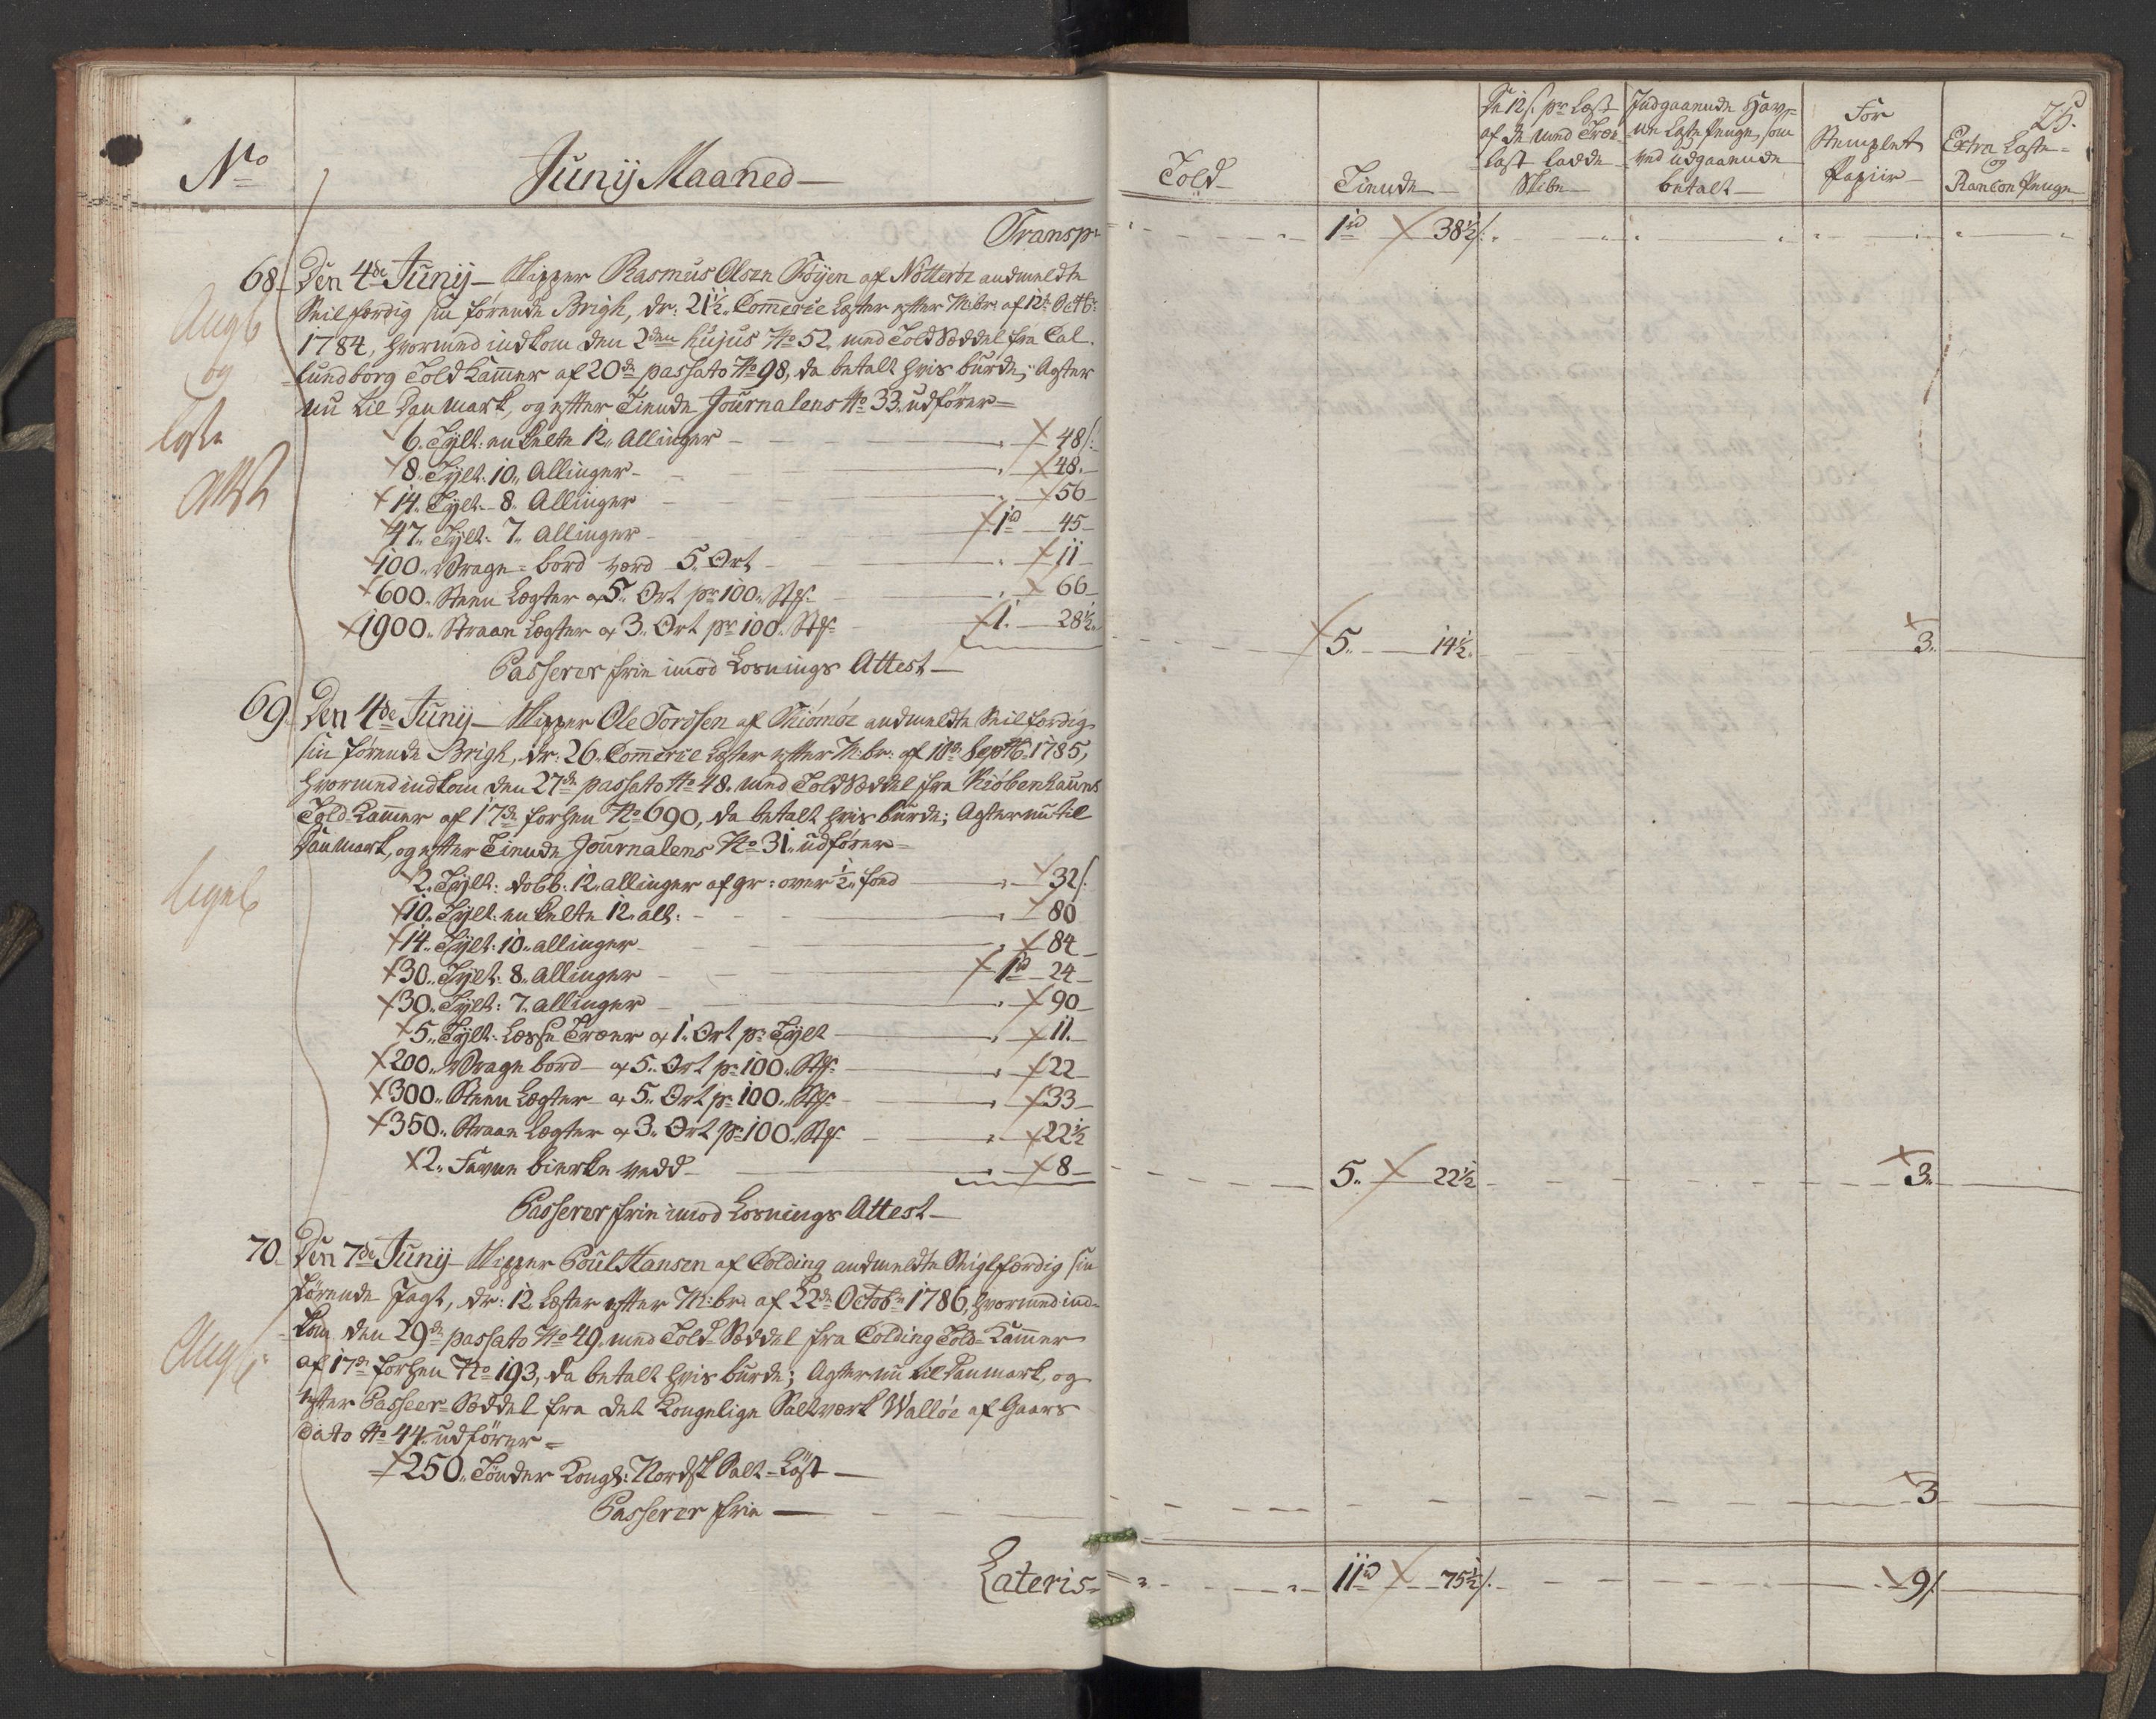 No
Junij Maaned
Transpr
68 Den 4de Junij Skipper Rasmus Olsen Föyen af Nötteröe andmeldte
Seilfærdig sin förende Brigh, dr: 21½ Commerce Læster efter M:br: af 12te Octbr:
1784, hvormed indkom den 2den hujus No 52 med Told Sæddel fra Cal-
lundborg Told Kammer af 20de passato No 98, da betalt hvis burde; Agter
nu til Danmark, og efter Tiende Journalens No 33 udförer
6. Tylt: enkelte 12 Allinger 48/:
8. Tylt: 10 Allinger 48
14. Tylt 8 Allinger 56
47. Tylt: 7 Allinger 1rd 45
100 Vrage-bord værd 5 Ort 11
600 Steen Lægter a 5 Ort pr 100 Stk 66
1900 Straae Lægter a 3 Ort pr 100 Stk 1. 28½
Passerer frie imod Losnings Attest
69. Den 4de Junij Skipper Ole Torösen af Tiömöe andmeldte Seilfærdig
sin förende Brigh, dr: 26 Commerce Læster efter M:br: af 18de Septbr 1785,
hvormed indkom den 27de passato No 48. med Told Sæddel fra Kiöbenhauns
Told-Kammer af 17de forhen No 690, da betalt hvis burde; Agter nu til
Danmark, og efter Tiende Journalens No 31. udförer
2. Tylt: dobb: 12 allinger af gr: over ½ fod 32/:
10. Tylt: enkelte 12 all: 80
14. Tylt: 10 allinger 84
30. Tylt: 8 allinger 1rd 24
30. Tylt: 7 allinger 90
5. Tylt: Læsse Træer a 1 Ort pr Tylt 11.
200 Vrage bord a 5. Ort pr 100 Stk 22
300 Steen Lægter a 5. Ort pr 100 Stk 33
350 Straae Lægter a 3 Ort pr 100 Stk 22½
2. Favne bierke vedd 8
Passerer frie imod Losnings Attest
70 Den 7de Junij Skipper Poul Hansen af Colding andmeldte Seiglfærdig sin
förende Jagt, dr: 12 Læster efter M:br: af 22de Octobr 1786, hvormed ind-
kom den 29de passato No 49 med Told-Sæddel fra Colding Told-Kammer
af 17de forhen No 193, da betalt hvis burde; Agter nu til Danmark, og
efter Passeer-Sæddel fra det Kongelige Saltværk Wallöe af Gaars
dato No 44 udförer
250 Tönder Kongl: Nordsk Salt-Löst
Passerer frie
Lateris
25.
Told
Tiende
De 12/: pr Læst af de med Træ-last ladde Skibe
Indgaaende Hav-ne Laste Penge, som ved udgaaende betalt
For Stemplet Papiir
Extra Laste- og Rancon Penge
1rd 38½/:
5. 14½ 3.
5. 22½ 3.
3
11rd 75½/: 9/: